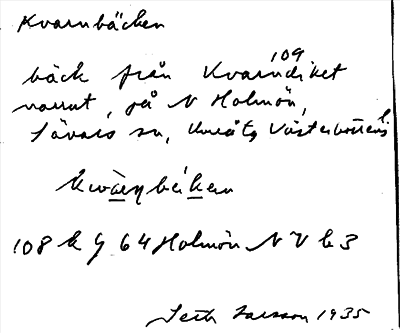 Kvarnbäcken
109
bäck från Kvarndiket
norrut, på N Holmön,
Sävars sn, Umeå tg Västerbottens l.
108 k g 64 Holmön N V b 3
Seth Larsson 1935